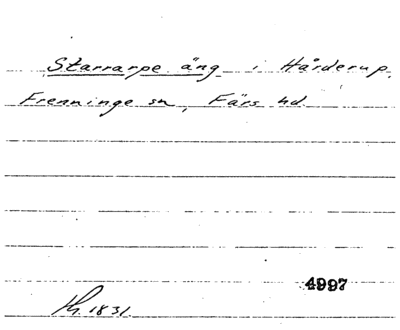 Starrarpe äng i Hårderup,
Frenninge sn, Färs hd.
4997
1831.